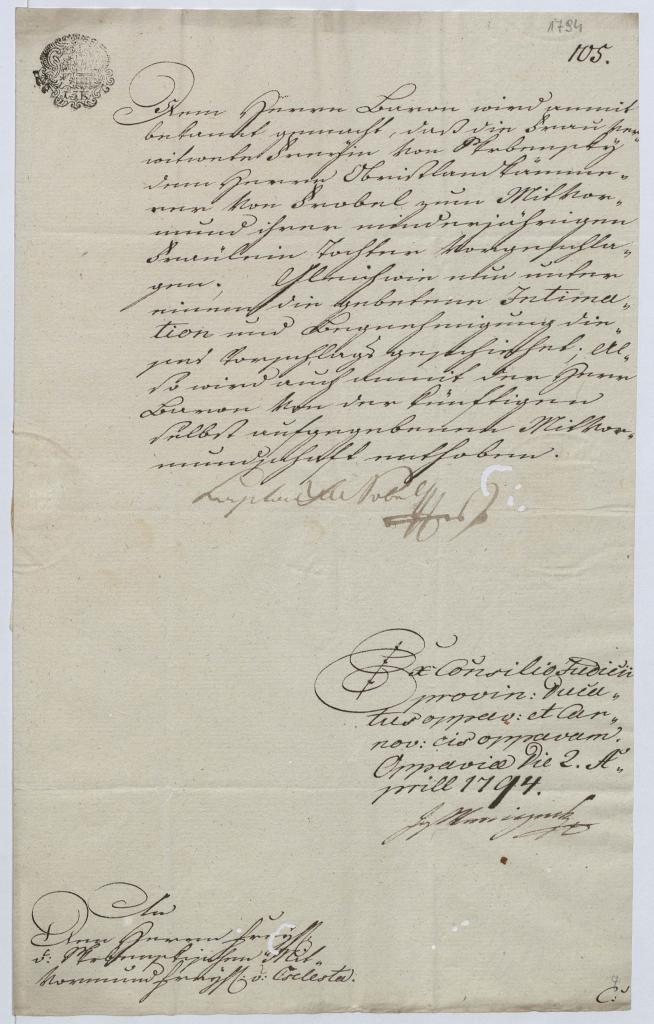 1794
105.
15 K
Dem Herrn Baron wird anmit
bekannt gemacht, daß die Frau ver-
witwete Freyin von Skrbensky
dem Herrn Obristlandkämme-
rer von Frobel zum Mitvor-
mund ihrer minderjährigen
Fräulein Tochter vorgeschla-
gen. Gleichwie nun unter
einem die gebetene Intima-
tion und Begnehmigung die-
ses Vorschlags geschiehet; Al-
so wird auch anmit der Herr
Baron von der künftigen
selbst aufgegebenen Mitvor-
mundschaft enthoben.
Ex Consilio Judicii
provin: Duca-
tus oppav: et Car-
nov: cis oppavam.
Oppaviæ Die 2. A-
prill 1794.
An
Den Herrn Freyh:
v: Skrbenskischen Mit-
vormund Freyh: v: Cselesta.
C: